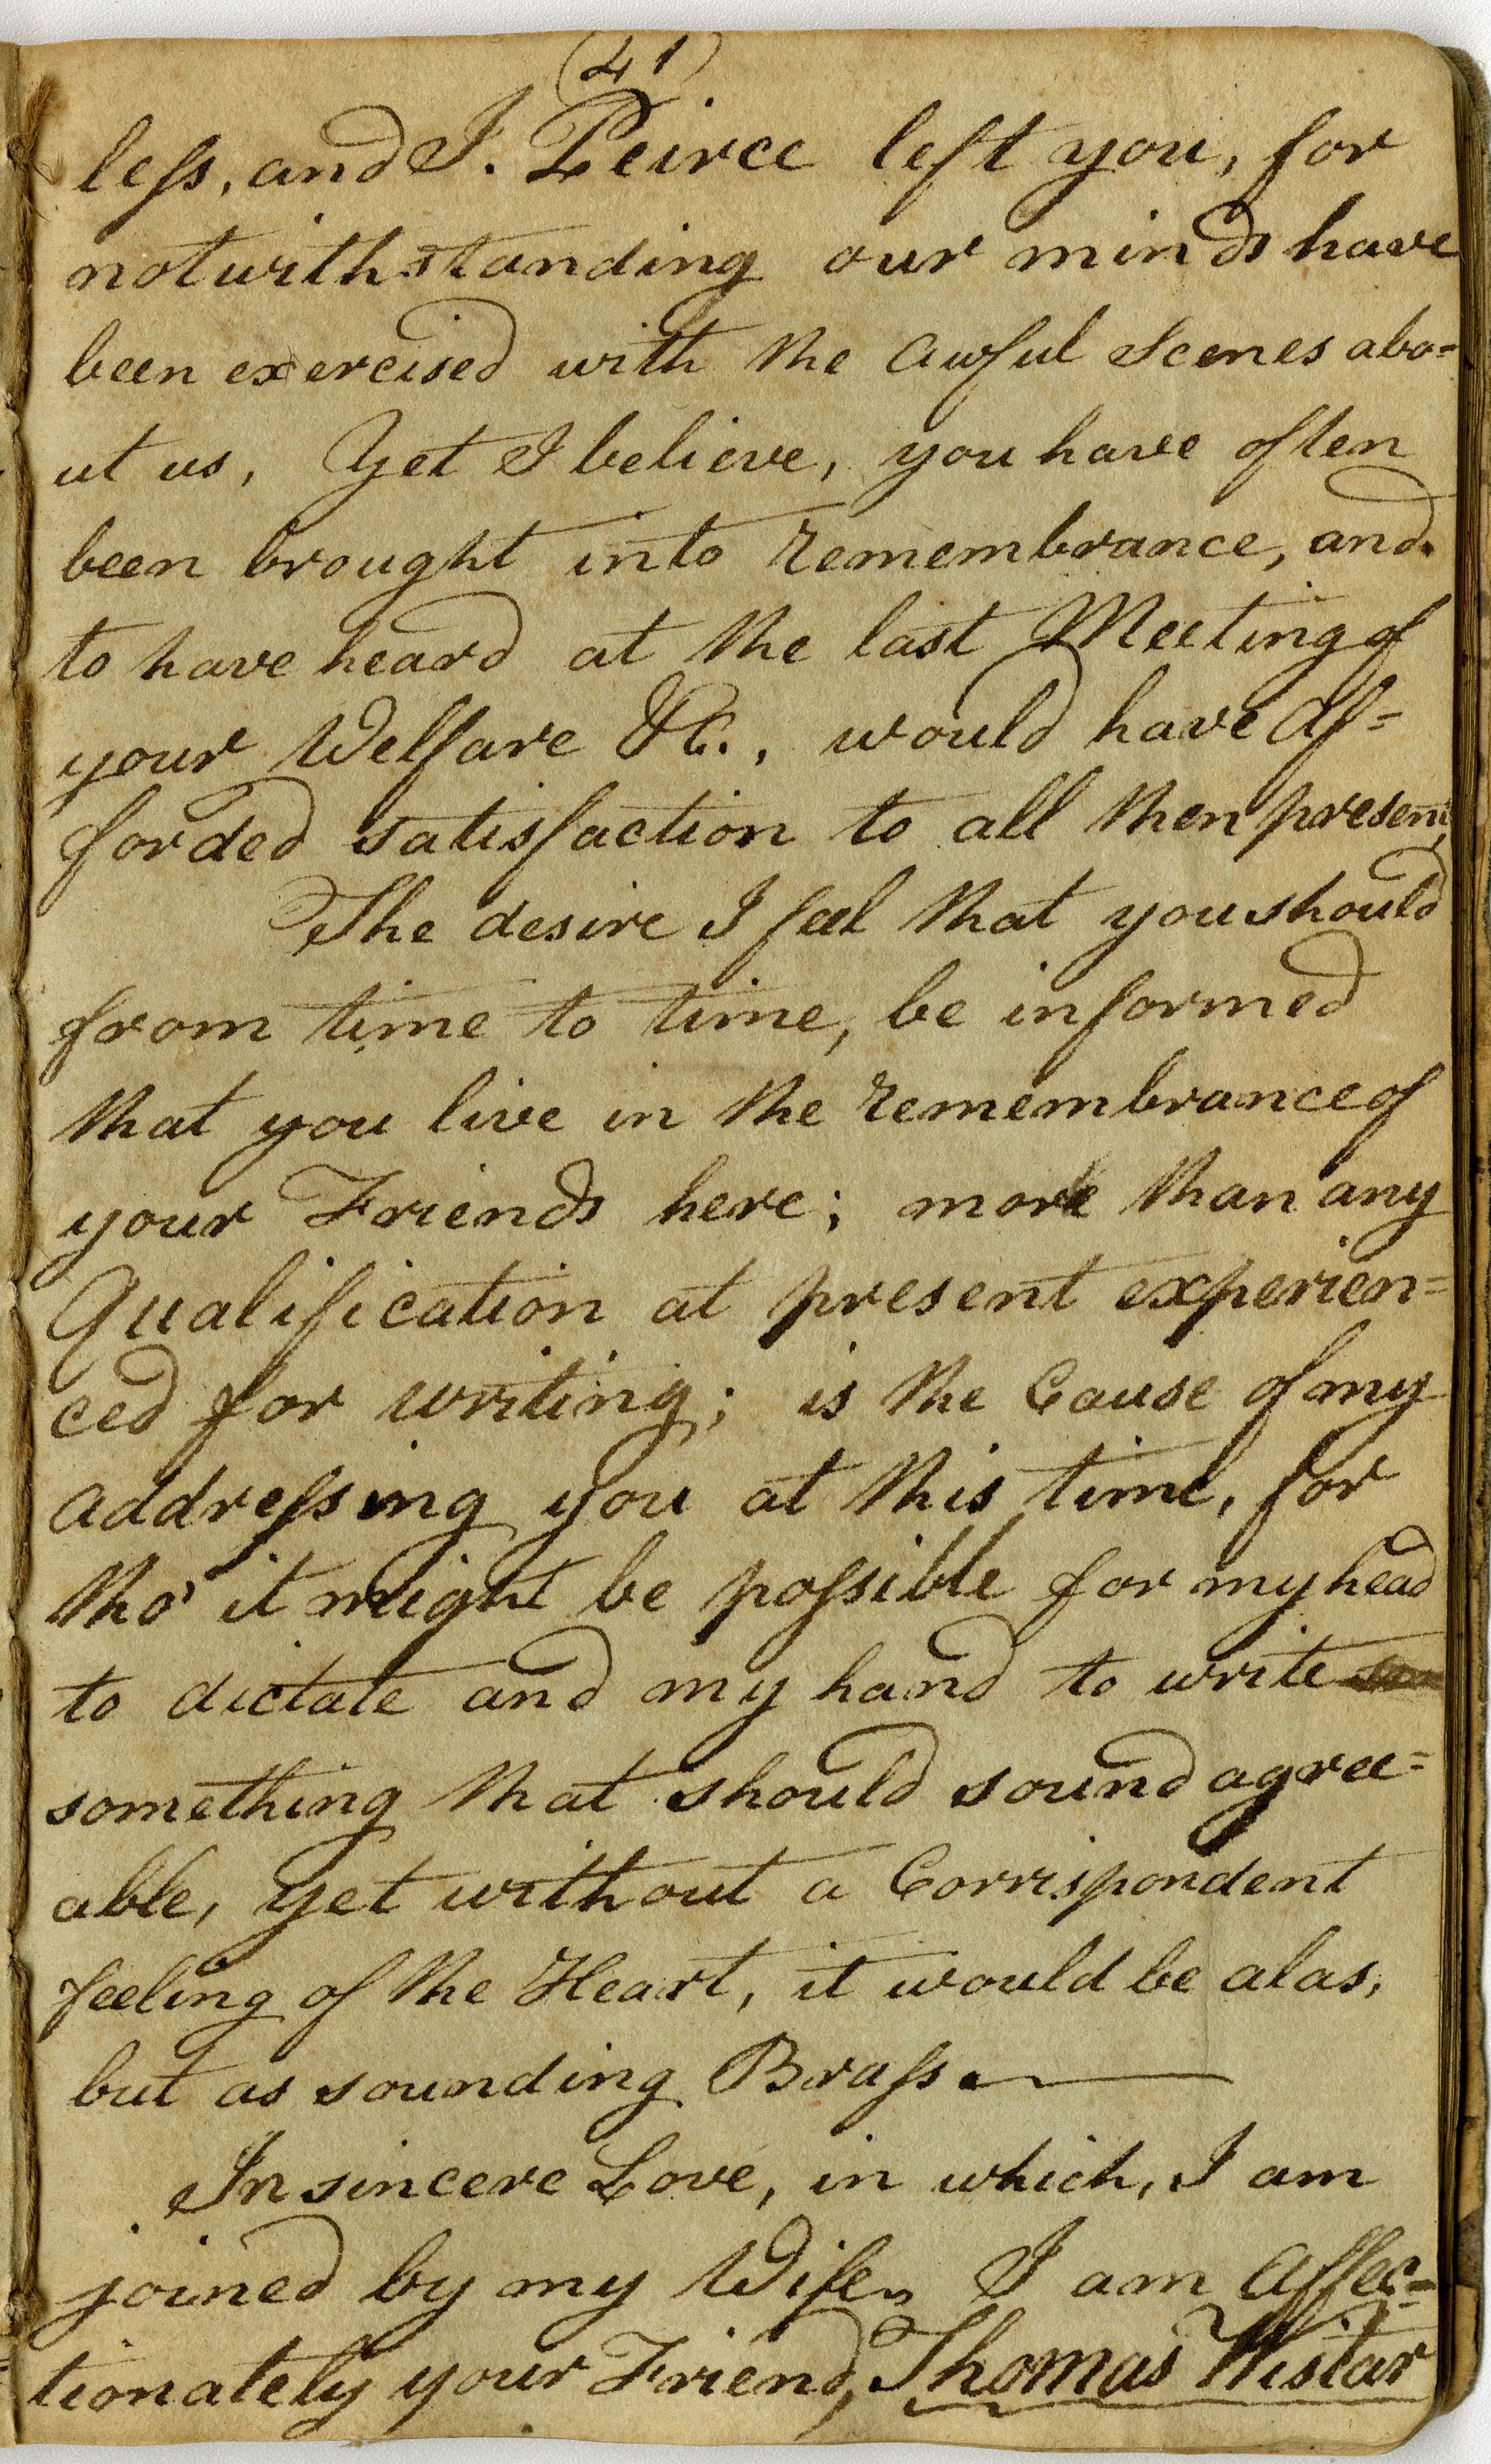 (41)
less, and I. Peirce left you, for
notwithstanding our minds have
been exercised with the awful Scenes abo=
ut us, Yet I believe, you have often
been brought into remembrance, and
to have heard at the last Meeting of
your Welfare &C., would have af=
forded satisfaction to all then present,
The desire I feel that you should
from time to time, be informed
that you live in the remembrance of
your Friends here; more than any
Qualification at present experien=
ced for writing; is the Cause of my
addressing you at this time, for
tho' it might be possible for my head
to dictate and my hand to write
something that should sound agree=
able, yet without a Corrispondent
feeling of the Heart, it would be alas,
but as sounding Brass.
In sincere Love, in which, I am
joined by my Wife, I am affec=
tionately your Friend, Thomas Wistar